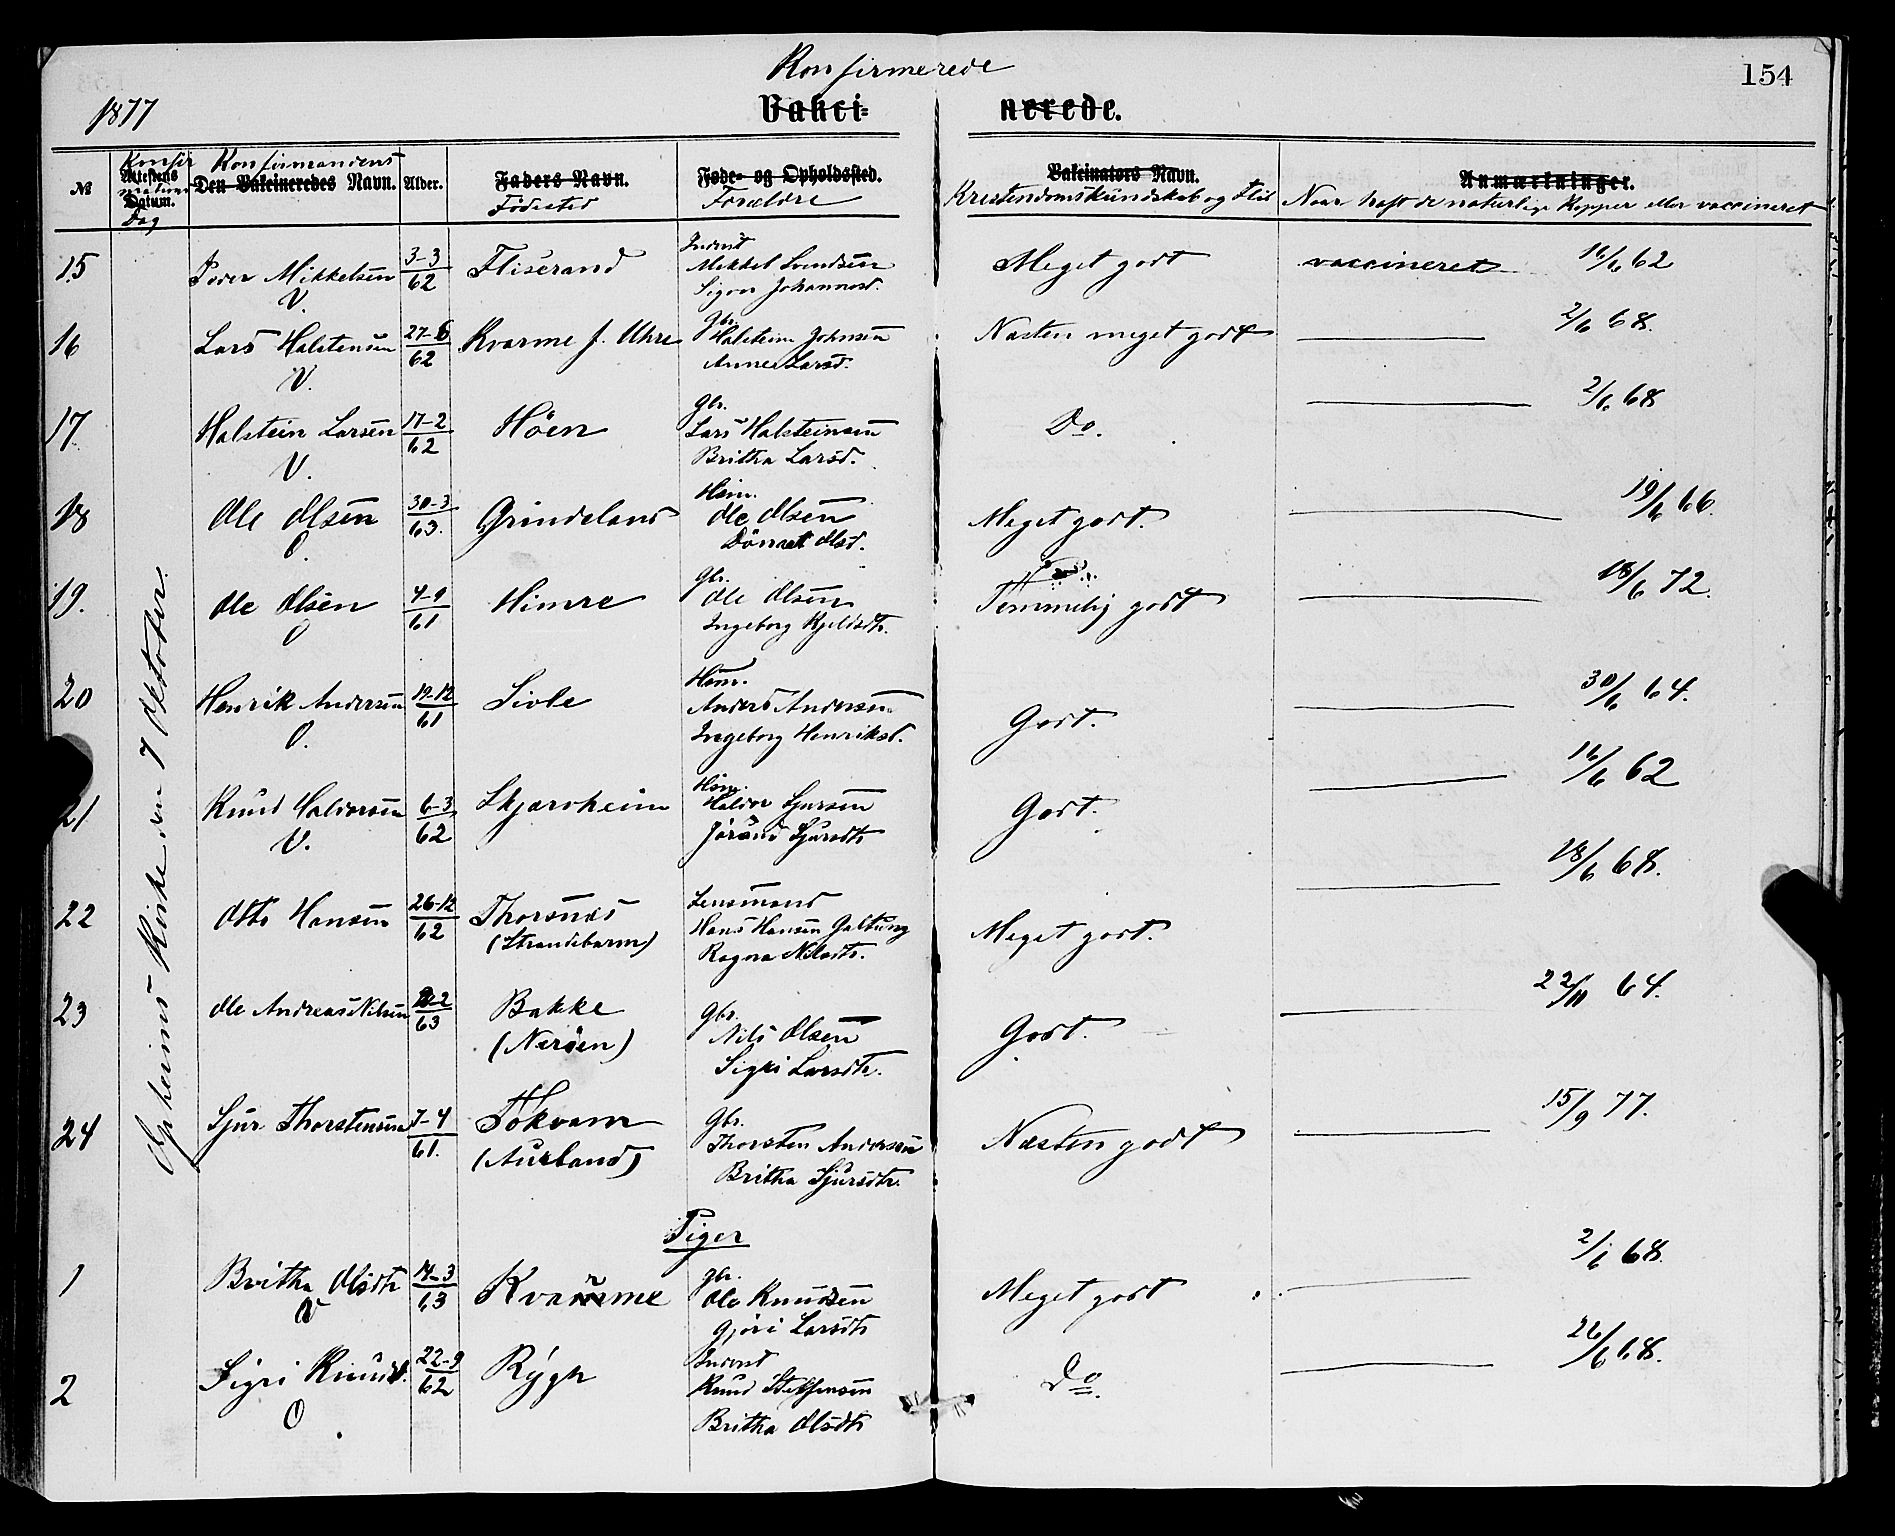 Konfirmerede
154
1877
Vakci-
nerede.
№
Konfir
Attestens
mations
Datum.
Dag
Konfirmandens
Den Vakcineredes Navn.
Alder.
Faders Navn.
Fødested
Føde- og Opholdssted.
Forældre
Vakcinators Navn.
Kristendomskundskab og Flid
Anmærkninger.
Naar haft de naturlige Kopper eller vaccineret
Opheims Kirke den 7 Oktober.
15 Iver Mikkelsen 3-3/62 Fliserand Inderst Meget godt vaccineret 16/6 62
V. Mikkel Svendsen
Sigvor Johannesd.
16 Lars Halstensen 27-6/62 Kvarme f. Uhre gbr. Næsten meget godt 2/6 68.
V. Halstein Johnsen
Anna Larsd.
17. Halstein Larsen 17-2/62 Höen gbr. Do. 2/6 68
V. Lars Halsteinsen
Britha Larsd.
18 Ole Olsen 30-3/63. Grindeland Hsm. Meget godt. 19/6 66.
O. Ole Olsen
Olsd.
19. Ole Olsen 4-9/61 Himre gbr. Temmelig godt 18/6 72.
O Ole Olsen
Ingeborg Kjeldsdtr.
20 Henrik Andersen 19-12/61 Sivle Hsm. Godt. 30/6 64.
O. Anders Andersen
Ingeborg Henriksd.
21 Knud Haldorsen 6-3/62 Skjærsheim Hsm. Godt. 16/6 62
V. Haldor Sjursen
Jörand Sjursdtr
22 Otto Hansen 26-12/62 Thorsnæs Lensmand Meget godt. 18/6 68.
(Strandebarm) Hans Hansen Galtung
Ragna Nilsdtr.
23 Ole Andreas Nilsen 2/63 Bakke gbr. Godt. 22/11 64.
(Neröen) Nils Olsen
Sigri Larsdtr.
24 Sjur Thorstensen 7-4/61. Tokvam gbr. Næsten godt 15/9 77.
(Aurland) Thorsten Andersen
Britha Sjursdtr.
Piger
1 Britha Olsdtr 14-3/63 Kvarme gbr. Meget godt 2/6 68.
V Ole Knudsen
Gjöri Larsdtr
2 Sigri Knudsd. 22-9/62 Rygh Inderst Do. 26/6 68.
O Knud Steffensen
Britha Olsdtr